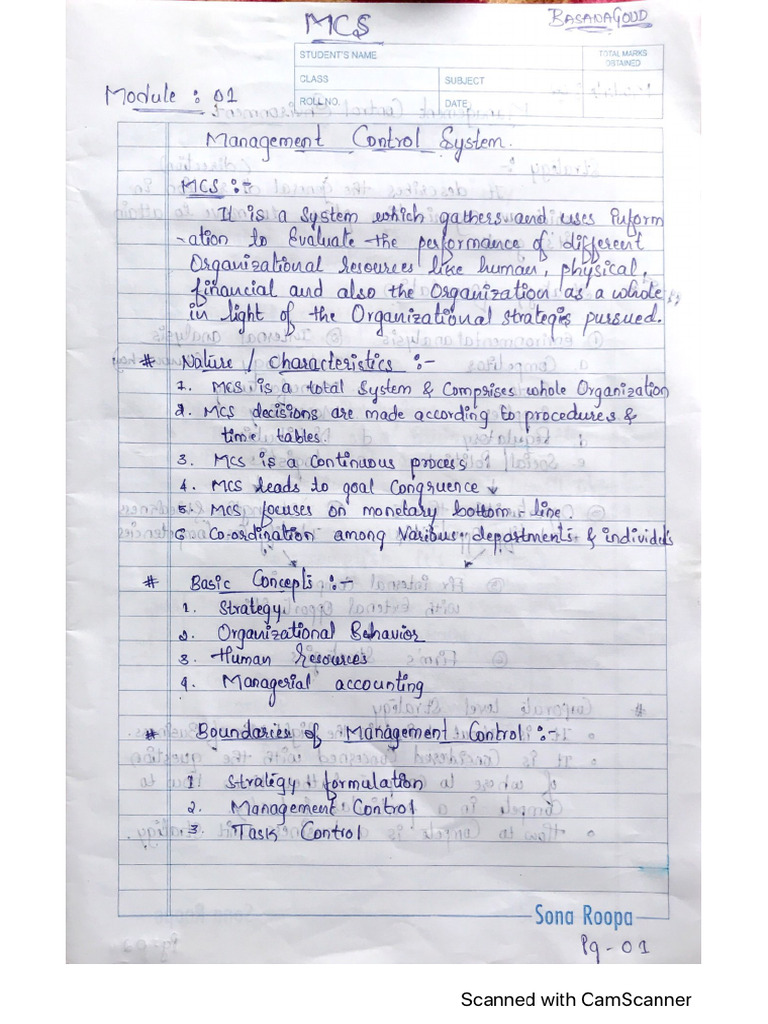 MCS
BASANAGOUD
STUDENT'S NAME
TOTAL MARKS OBTAINED
CLASS
SUBJECT
ROLL NO.
DATE
Module : 01
Management Control System.
MCS :-
It is a System which gathers and uses inform
-ation to Evaluate the performance of different
Organizational resources like human, physical,
financial and also the Organization as a whole
in light of the Organizational strategies pursued.
# Nature / Characteristics :-
1. MCS is a total System & Comprises whole Organization
2. MCS decisions are made according to procedures &
time tables.
3. MCS is a continuous process
4. MCS leads to goal Congruence
5. MCS focuses on monetary bottom-line.
6 Co-ordination among Various departments & individ's
# Basic Concepts :-
1. Strategy
2. Organizational Behavior
3. Human Resources
4. Managerial accounting
# Boundaries of Management Control :-
1 Strategy formulation
2. Management Control
3. Task Control
Sona Roopa
Pg - 01
Scanned with CamScanner